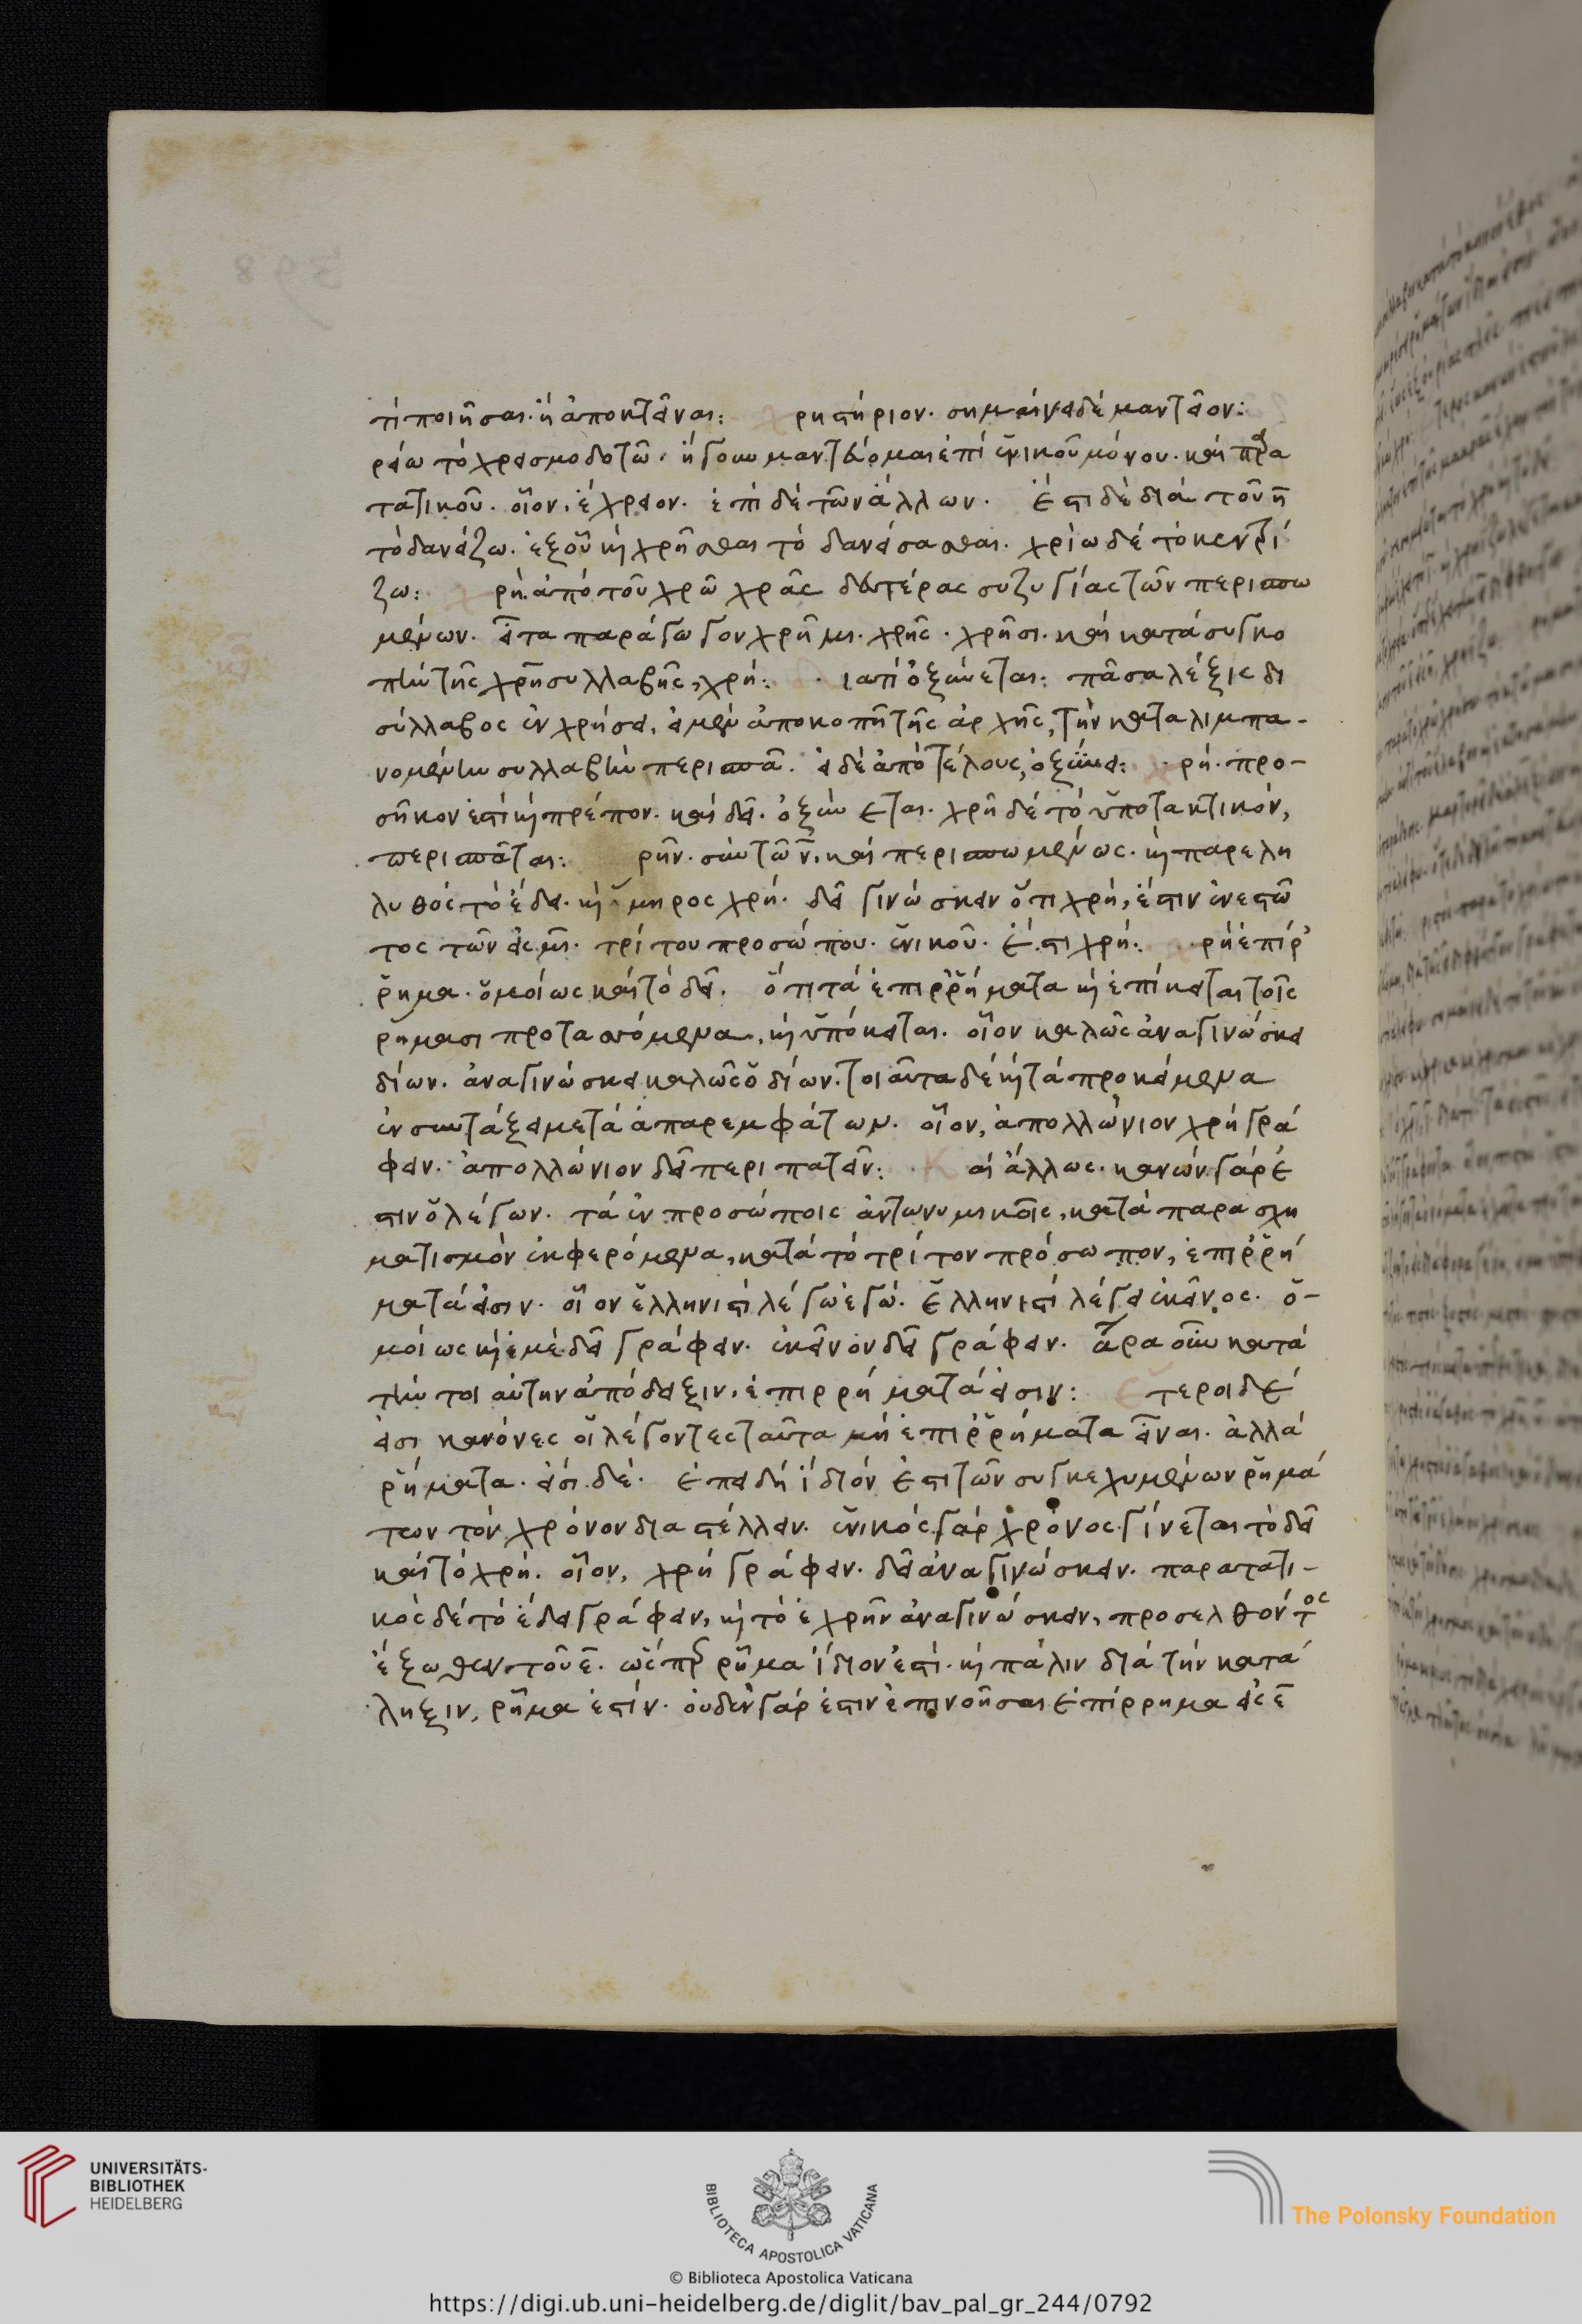 τὶ ποιῆσαι. ἢ ἀποκτεῖναι: ρηστήριον. σημαίνει δὲ μαντεῖον:
ρείω τὸ χρεισμοδοτῶ. ἤγουν μαντεύομαι ἐπὶ ἑνικοῦ μόνου. καὶ παρα
τατικοῦ. οἷον. ἔχρειον. ἐπὶ δὲ τῶν ἄλλων. ἔστι δὲ διὰ τοῦ η
τὸ δανείζω. ἐξ οὗ καὶ χρῆσθαι τὸ δανείσασθαι. χρίω δὲ τὸ κεντρί
ζω: ρή. ἀπὸ τοῦ χρῶ χρᾶς δευτέρας συζυγίας τῶν περισπω
μένων. εἶτα παράγωγον χρῆμι. χρῆς. χρῆσι. καὶ κατὰ συγκο
πὴν τῆς χρη συλλαβῆς, χρή: ιατί ὀξύνεται: πᾶσα λέξις δι
σύλλαβος ἐν χρήσει. εἰ μὲν ἀποκοπῇ τῆς ἀρχῆς, τὴν καταλιμπα-
νομένην συλλαβὴν περισπᾶ. εἰ δὲ ἀπὸ τέλους, ὀξύνει: ρή. προ-
σῆκον ἐστὶ καὶ πρέπον. καὶ δεῖ. ὀξύνεται. χρῆ δὲ τὸ ὑποτακτικόν,
περισπᾶται: ρῆν. σὺν τῷ ν. καὶ περισπωμένως. καὶ παρελη
λυθὸς τὸ ἔδει. καὶ ὅμηρος χρή. δεῖ γινώσκειν ὅτι χρή, ἔστιν ἐνεστῶ
τος τῶν εἰς μι. τρίτου προσώπου. ἑνικοῦ. ἔστι χρή: ρὴ ἐπίρ
ρημα. ὁμοίως καὶ τὸ δεῖ. ὅτι τὰ ἐπιρρήματα καὶ ἐπίκειται τοῖς
ρήμασι προτασσόμενα, καὶ ὑπόκειται. οἷον καλῶς ἀναγινώσκει
δίων. ἀναγινώσκει καλῶς ὁ δίων. τοιαῦτα δὲ καὶ τὰ προκείμενα
ἐν συντάξει μετὰ ἀπαρεμφάτων. οἷον, ἀπολλώνιον χρὴ γρά
φειν. ἀπολλώνιον δεῖ περιπατεῖν: Κ αὶ ἄλλως. κανὼν γάρ ἐ
στιν ὁ λέγων. τὰ ἐν προσώποις ἀντωνυμικοῖς, κατὰ παρασχη
ματισμὸν ἐκφερόμενα, κατὰ τὸ τρίτον πρόσωπον, ἐπιρρή
ματά εἰσιν. οἷον ἑλληνιστὶ λέγω ἐγώ. ἑλληνιστὶ λέγει ἐκεῖνος. ὁ-
μοίως καὶ ἐμὲ δεῖ γράφειν. ἐκεῖνον δεῖ γράφειν. ἆρα οὖν κατὰ
τὴν τοιαύτην ἀπόδειξιν. ἐπιρρήματά εἰσιν: ἕτεροι δέ
εἰσι κανόνες οἱ λέγοντες ταῦτα μὴ ἐπιρρήματα εἶναι. ἀλλὰ
ρήματα. εἰσὶ δέ. ἐπειδὴ ἴδιόν ἐστι τῶν συγκεχυμένων ρημά
των τὸν χρόνον διαστέλλειν. ἑνικὸς γὰρ χρόνος γίνεται τὸ δεῖ
καὶ τὸ χρή. οἷον, χρὴ γράφειν. δεῖ ἀναγινώσκειν. παρατατι-
κὸς δὲ τὸ ἔδει γράφειν, καὶ τὸ ἐχρῆν ἀναγινώσκειν, προσελθόντος
ἔξωθεν τοῦ ε. ὥσπερ ρῆμα ἴδιον ἐστι. καὶ πάλιν διὰ τὴν κατά
ληξιν, ρῆμα ἐστίν. οὐδὲν γάρ ἐστιν ἐπινοῆσαι ἐπίρρημα εἰς ε
UNIVERSITÄTS-
BIBLIOTHEK
HEIDELBERG
BIBLIOTECA APOSTOLICA VATICANA
The Polonsky Foundation
© Biblioteca Apostolica Vaticana
https://digi.ub.uni-heidelberg.de/diglit/bav_pal_gr_244/0792